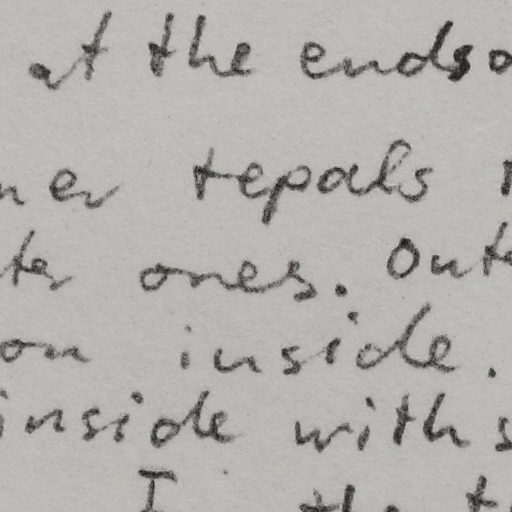 at the ends
ner tepals
ter ones. Oute
om inside.
inside with s
I the t